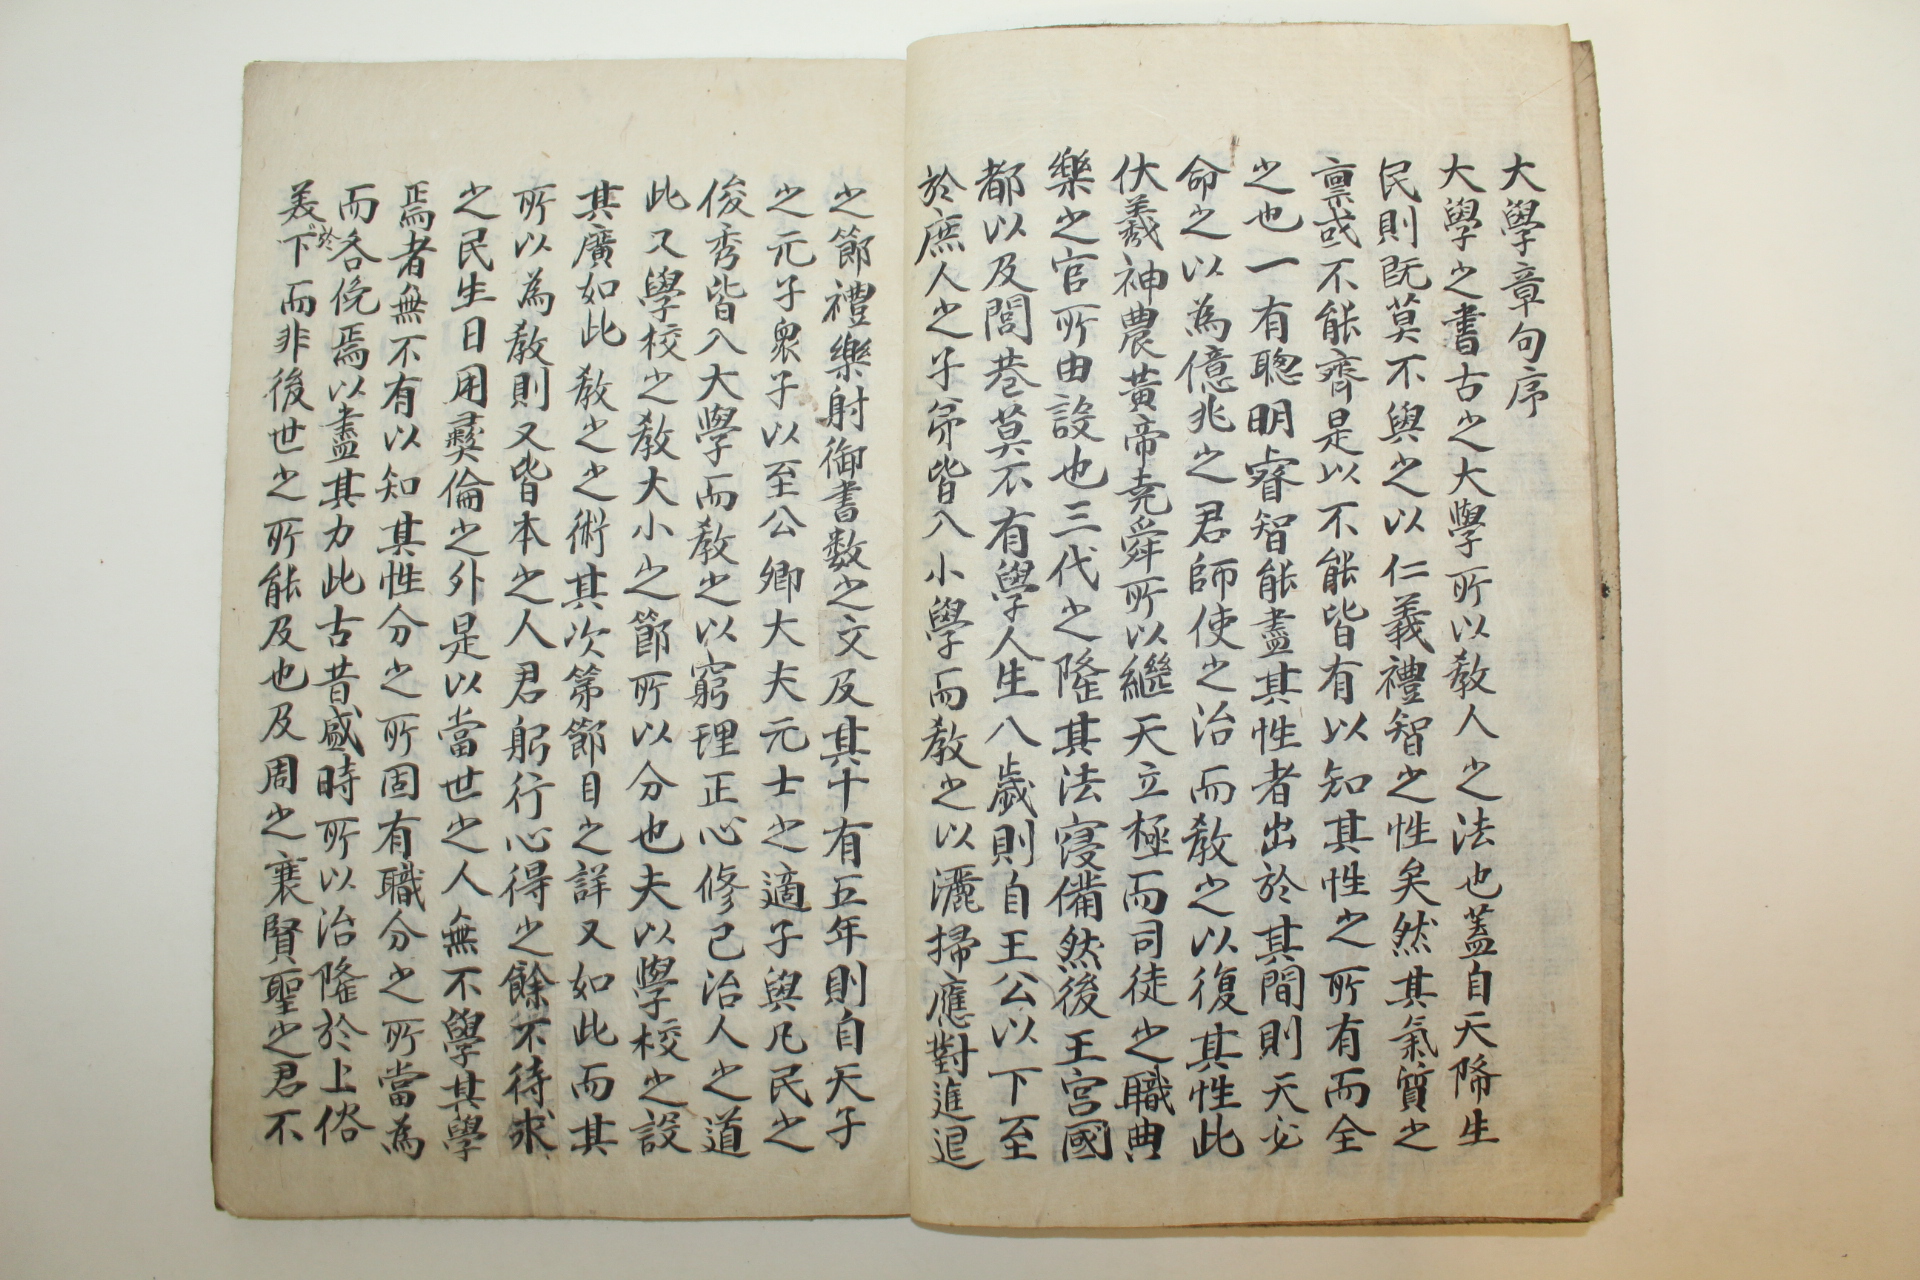 大學章句序
大學之書古之大學所以敎人之法也蓋自天降生
民則旣莫不與之以仁義禮智之性矣然其氣質之
禀或不能齊是以不能皆有以知其性之所有而全
之也一有聰明睿智能盡其性者出於其間則天必
命之以為億兆之君師使之治而敎之以復其性此
伏羲神農黃帝堯舜所以繼天立極而司徒之職典
樂之官所由設也三代之隆其法寖備然後王宮國
都以及閭巷莫不有學人生八歲則自王公以下至
於庶人之子弟皆入小學而敎之以灑掃應對進退
之節禮樂射御書数之文及其十有五年則自天子
之元子衆子以至公卿大夫元士之適子與凡民之
俊秀皆入大學而敎之以窮理正心修己治人之道
此又學校之敎大小之節所以分也夫以學校之設
其廣如此敎之之術其次第節目之詳又如此而其
所以為敎則又皆本之人君躬行心得之餘不待求
之民生日用彛倫之外是以當世之人無不學其學
焉者無不有以知其性分之所固有職分之所當為
而各俛焉以盡其力此古昔盛時所以治隆於上俗
美於下而非後世之所能及也及周之衰賢聖之君不